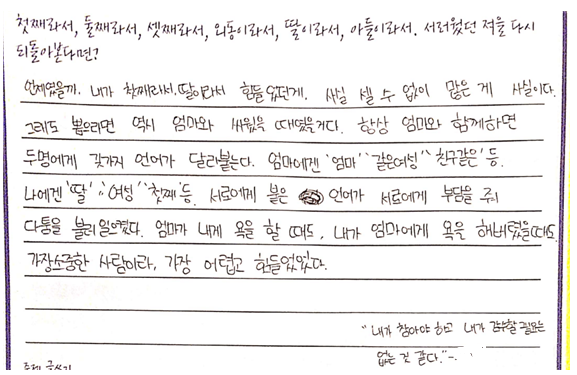 첫째라서, 둘째라서, 셋째라서, 외동이라서, 딸이라서, 아들이라서. 서러웠던 적을 다시
되돌아본다면?
언제였을까. 내가 첫째라서, 딸이라서 힘들었던게. 사실 셀 수 없이 많은 게 사실이다.
그래도 뽑으라면 역시 엄마와 싸웠을 때였을거다. 항상 엄마와 함께하면
두명에게 갖가지 언어가 달라붙는다. 엄마에겐 '엄마' '같은여성' '친구같은' 등.
나에겐 '딸' '여성' '첫째' 등. 서로에게 붙은 언어가 서로에게 부담을 주고
다툼을 불러일으켰다. 엄마가 내게 욕을 할 때도, 내가 엄마에게 욕을 해버렸을때도
가장소중한 사람이라, 가장 어렵고 힘들었었다.
"내가 참아야 하고 내가 감수할 필요는
없는 것 같다."-